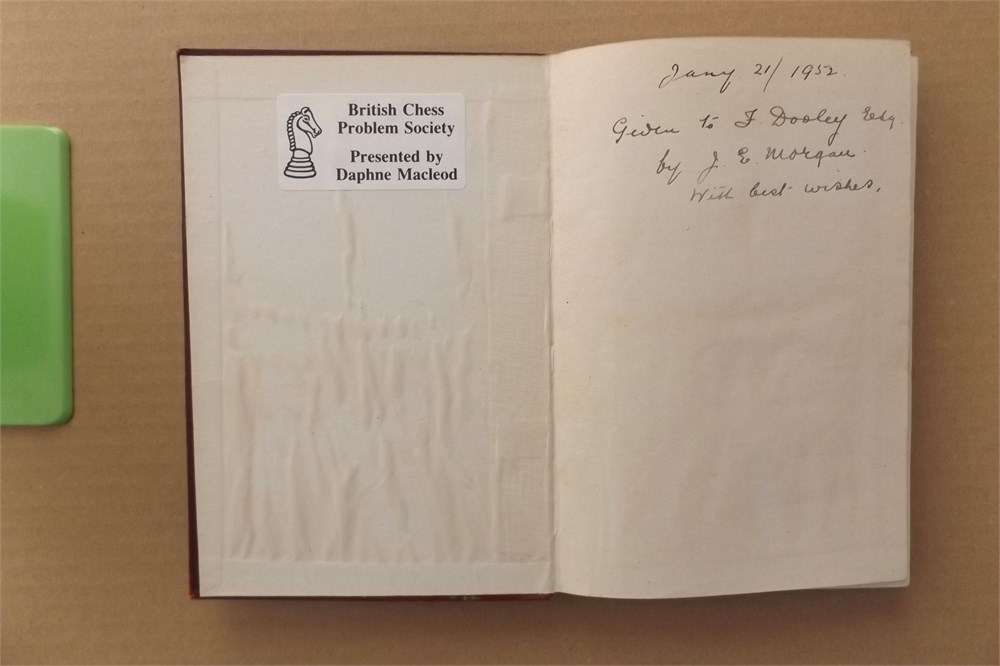 British Chess
Problem Society
Presented by
Daphne Macleod
Jany 21/ 1952.
Given to F. Dooley Esq.
by J. E. Morgan.
With best wishes.